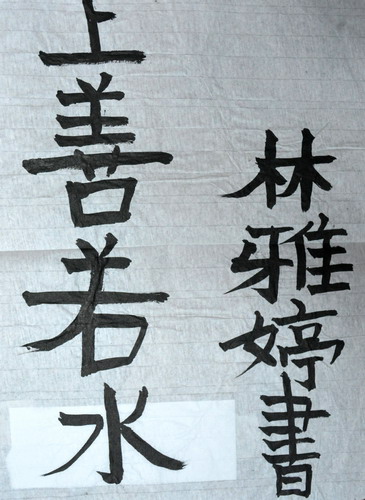 上善若水
林雅婷書